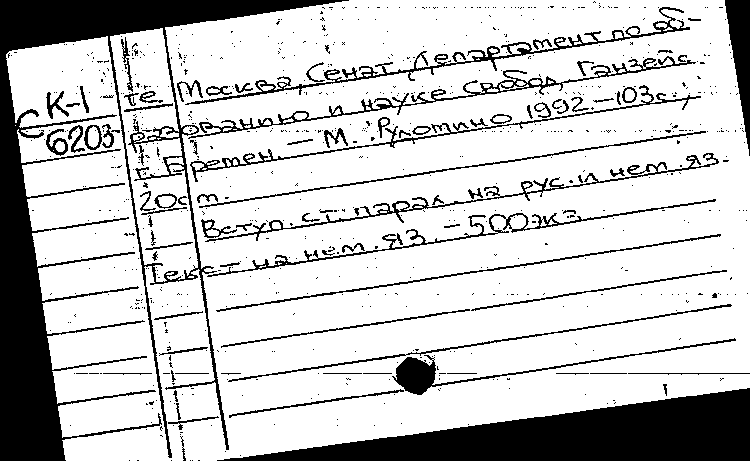 те Москва, Сенат, Департамент по об-
К-1 разованию и науке свобод. Ганзейс.
6203 г. Бремен. — М.: Рудомино, 1992. — 103с.;
20см.
Вступ. ст. парал. на рус. и нем. яз.
Текст на нем. яз. — 500экз